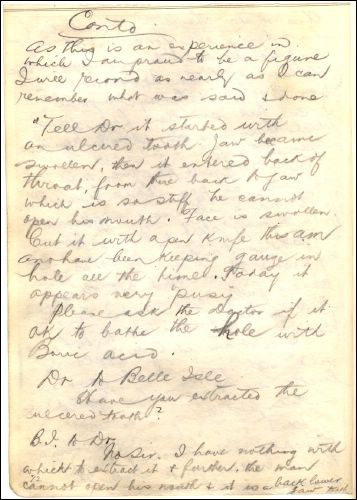 Contd
As thing is an experience in
which I am proud to be a figure
I will record as nearly as I can
remember what was said & done
"Tell Dr it started with
an ulcered tooth Jaw became
swollen, then it entered back of
throat, from there back to jaw
which is so stiff he cannot
open his mouth. Face is swollen.
Cut it with a pen knife this am
and have been keeping gauze in
hole all the time. Today it
appears very "pusy"
Please ask the Doctor if it
ok to bathe the hole with
Boric acid.
Dr to Belle Isle
Have you extracted the
ulcered tooth?
B.I. to Dr
No Sir. I have nothing with
which to extract it & further, the man
cannot open his mouth & it is a back lower
jaw tooth